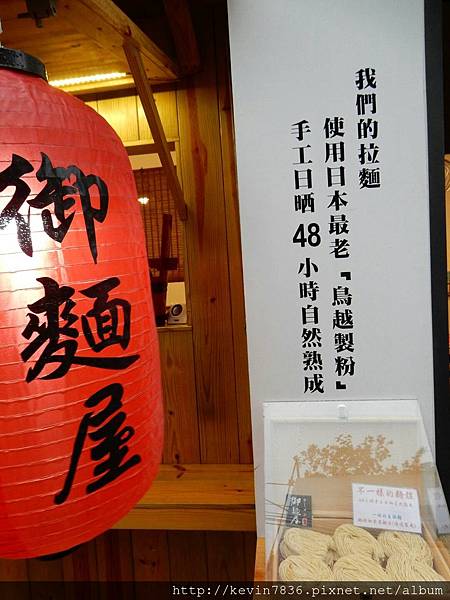 御麵屋
我們的拉麵
使用日本最老『鳥越製粉』
手工日晒 48 小時自然熟成
不一樣的麵
御麵屋
http://kevin7836.pixnet.net/album